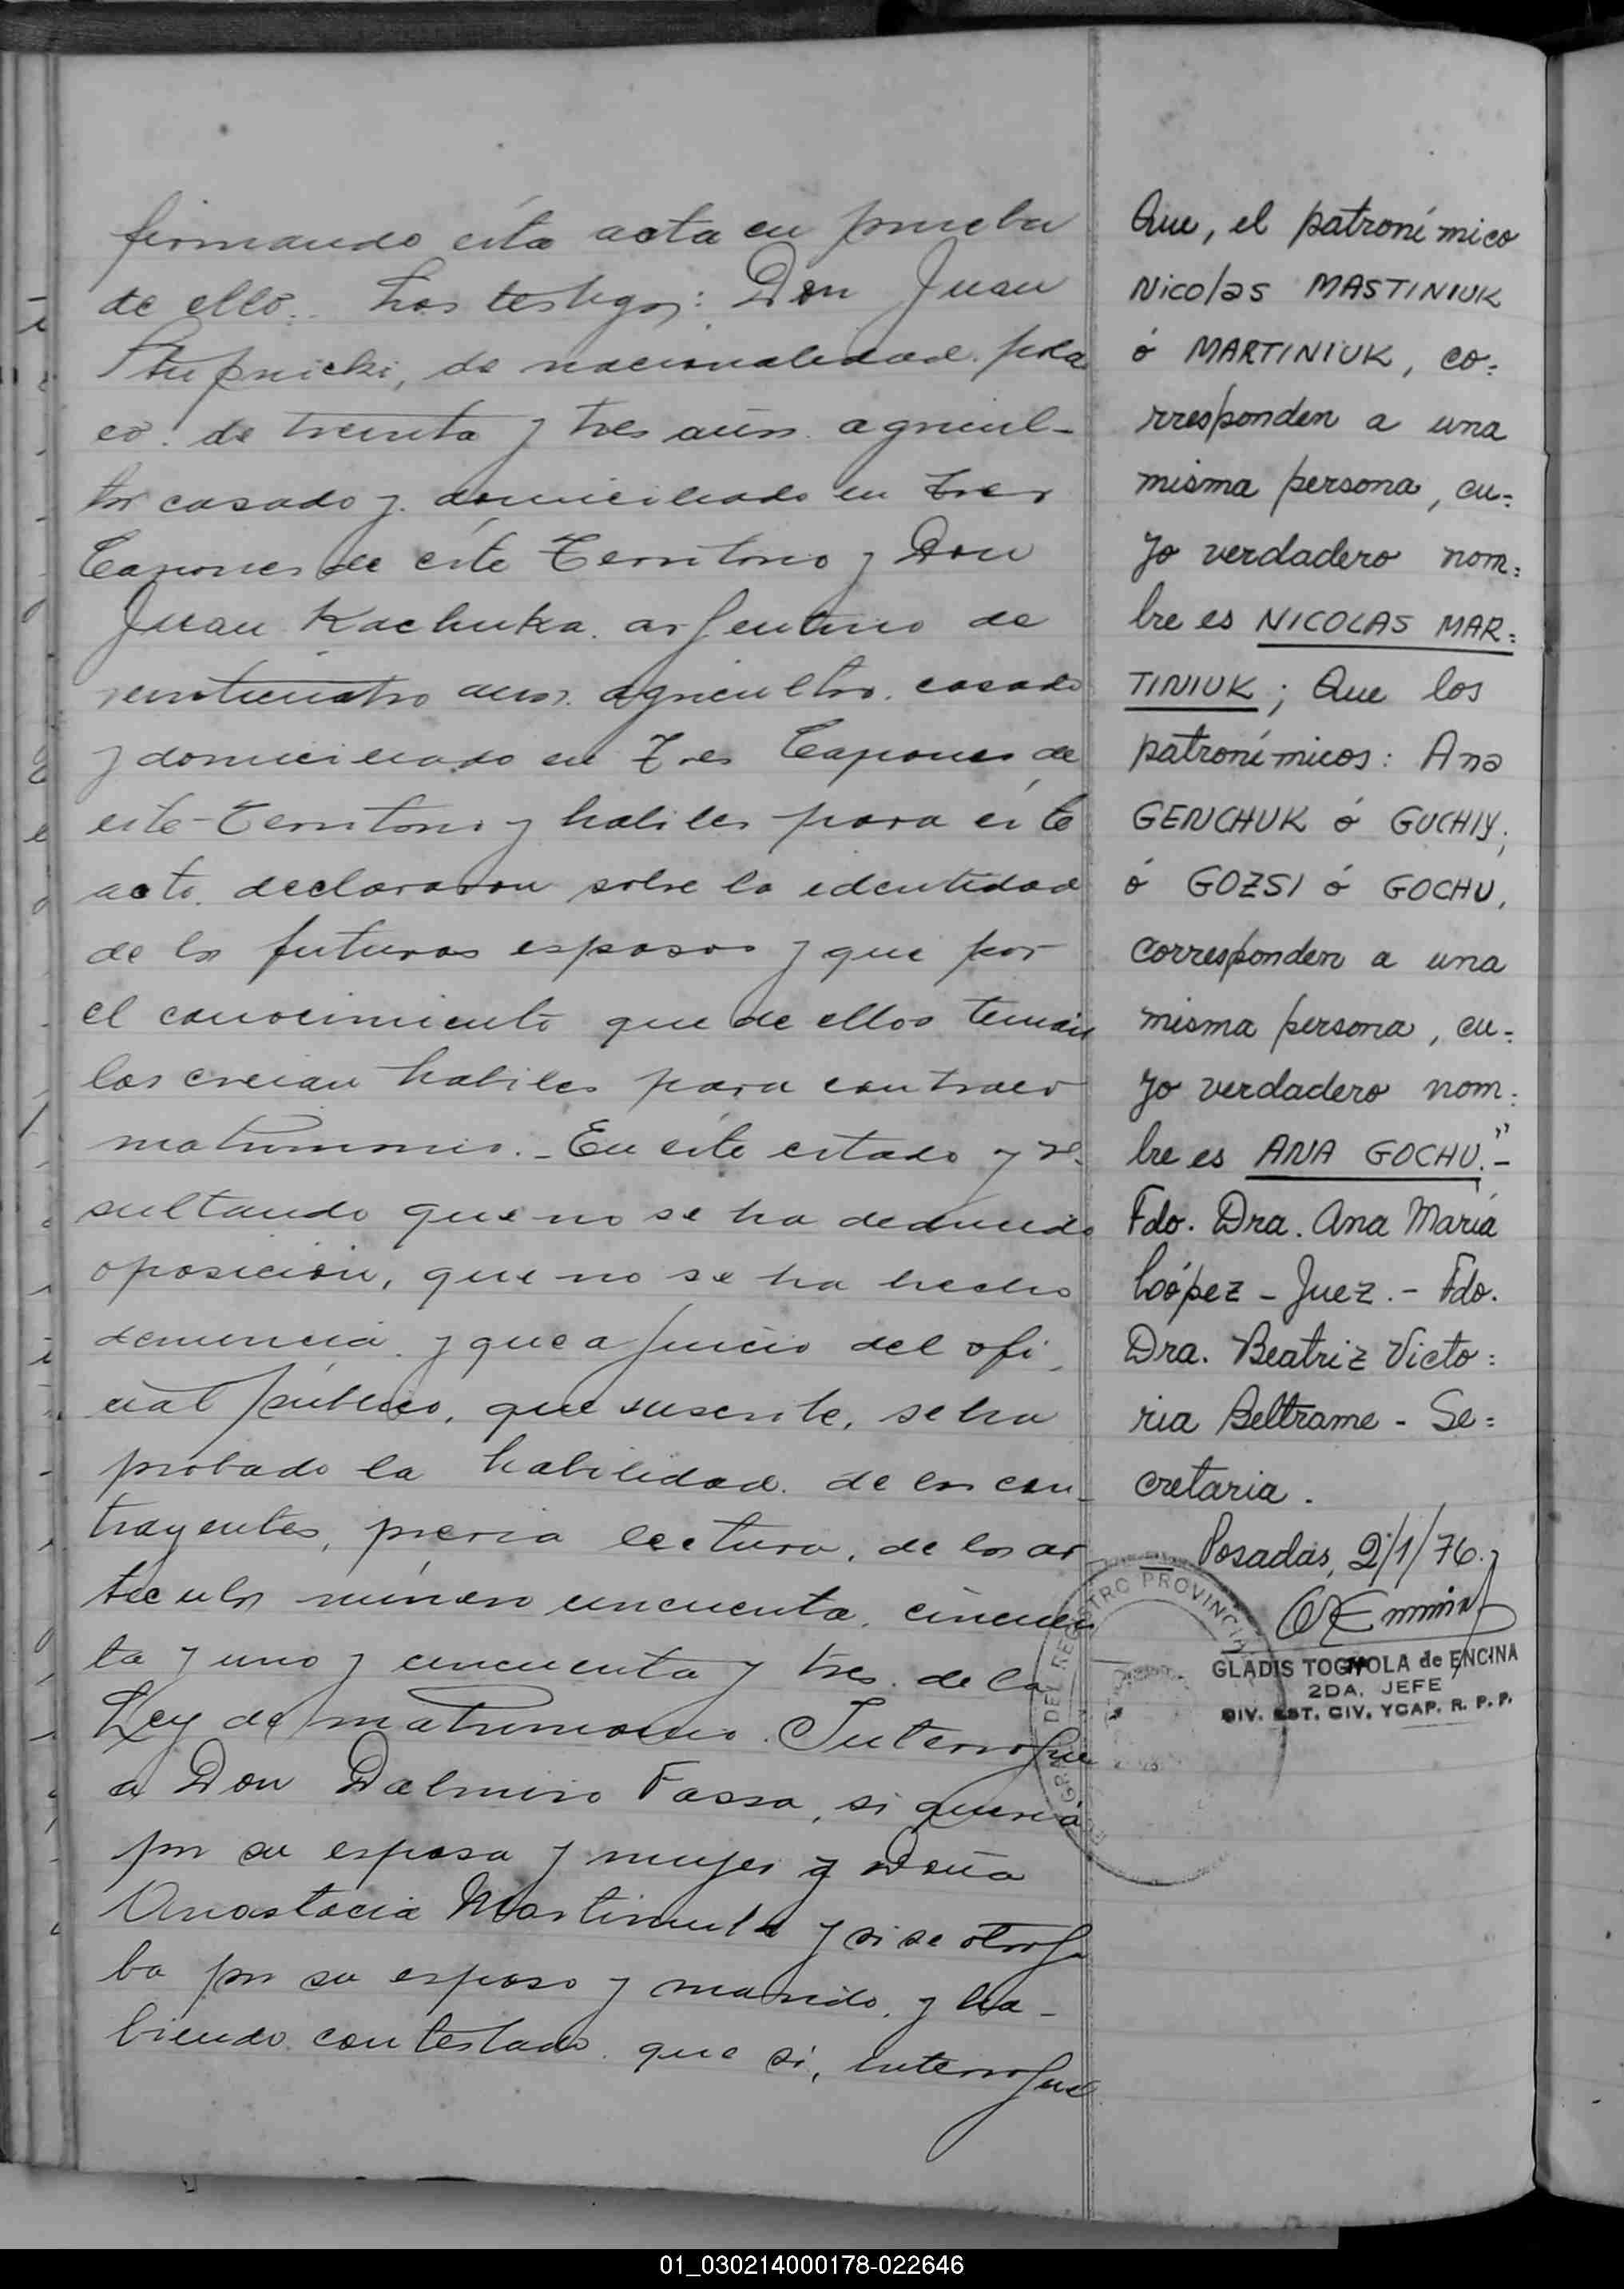 firmando ésta acta en prueba
de ello. Los testigos: Don Juan
Stupnicki, de nacionalidad pola
co. de treinta y tres años. agricul-
tor casado y domiciliado en Tres
Capones de éste Territorio y Don
Juan Kachuka. argentino de
veinticuatro años. agricultor. casado
y domiciliado en Tres Capones de
este Territorio y habiles para éste
acto. declararon sobre la identidad
de los futuros esposos y que por
el conocimiento que de ellos tenian
los creian habiles para contraer
matrimonio. - En éste estado y re-
sultando que no se ha deducido
oposición, que no se ha hecho
denuncia y que a juicio del ofi-
cial público, que suscribe, se ha
probado la habilidad de los con-
trayentes, previa lectura, de los ar
ticulos número cincuenta, cincuen
ta y uno y cincuenta y tres de la
Ley de matrimonio. Interrogue
a Don Dalmiro Fassa, si queria
por su esposa y mujer a Doña
Anastacia Martiniuk y si se otorga
ba por su esposo y marido, y ha-
biendo contestado que si, interrogue
Que, el patronímico
Nicolas MASTINIUK
ó MARTINIUK, co=
rresponden a una
misma persona, cu=
yo verdadero nom=
bre es NICOLAS MAR=
TINIUK; Que los
patronímicos: Ana
GENCHUK ó GUCHIY;
ó GOZSI ó GOCHU,
corresponden a una
misma persona, cu=
yo verdadero nom=
bre es ANA GOCHU."-
Fdo. Dra. Ana María
López - Juez. - Fdo.
Dra. Beatriz Victo=
ria Beltrame - Se=
cretaria.
Posadas, 2/1/76.
GLADIS TOGNOLA de ENCINA
2DA. JEFE
DIV. EST. CIV. YCAP. R. P. P.
DEL REGISTRO PROVINCIAL
01_030214000178-022646